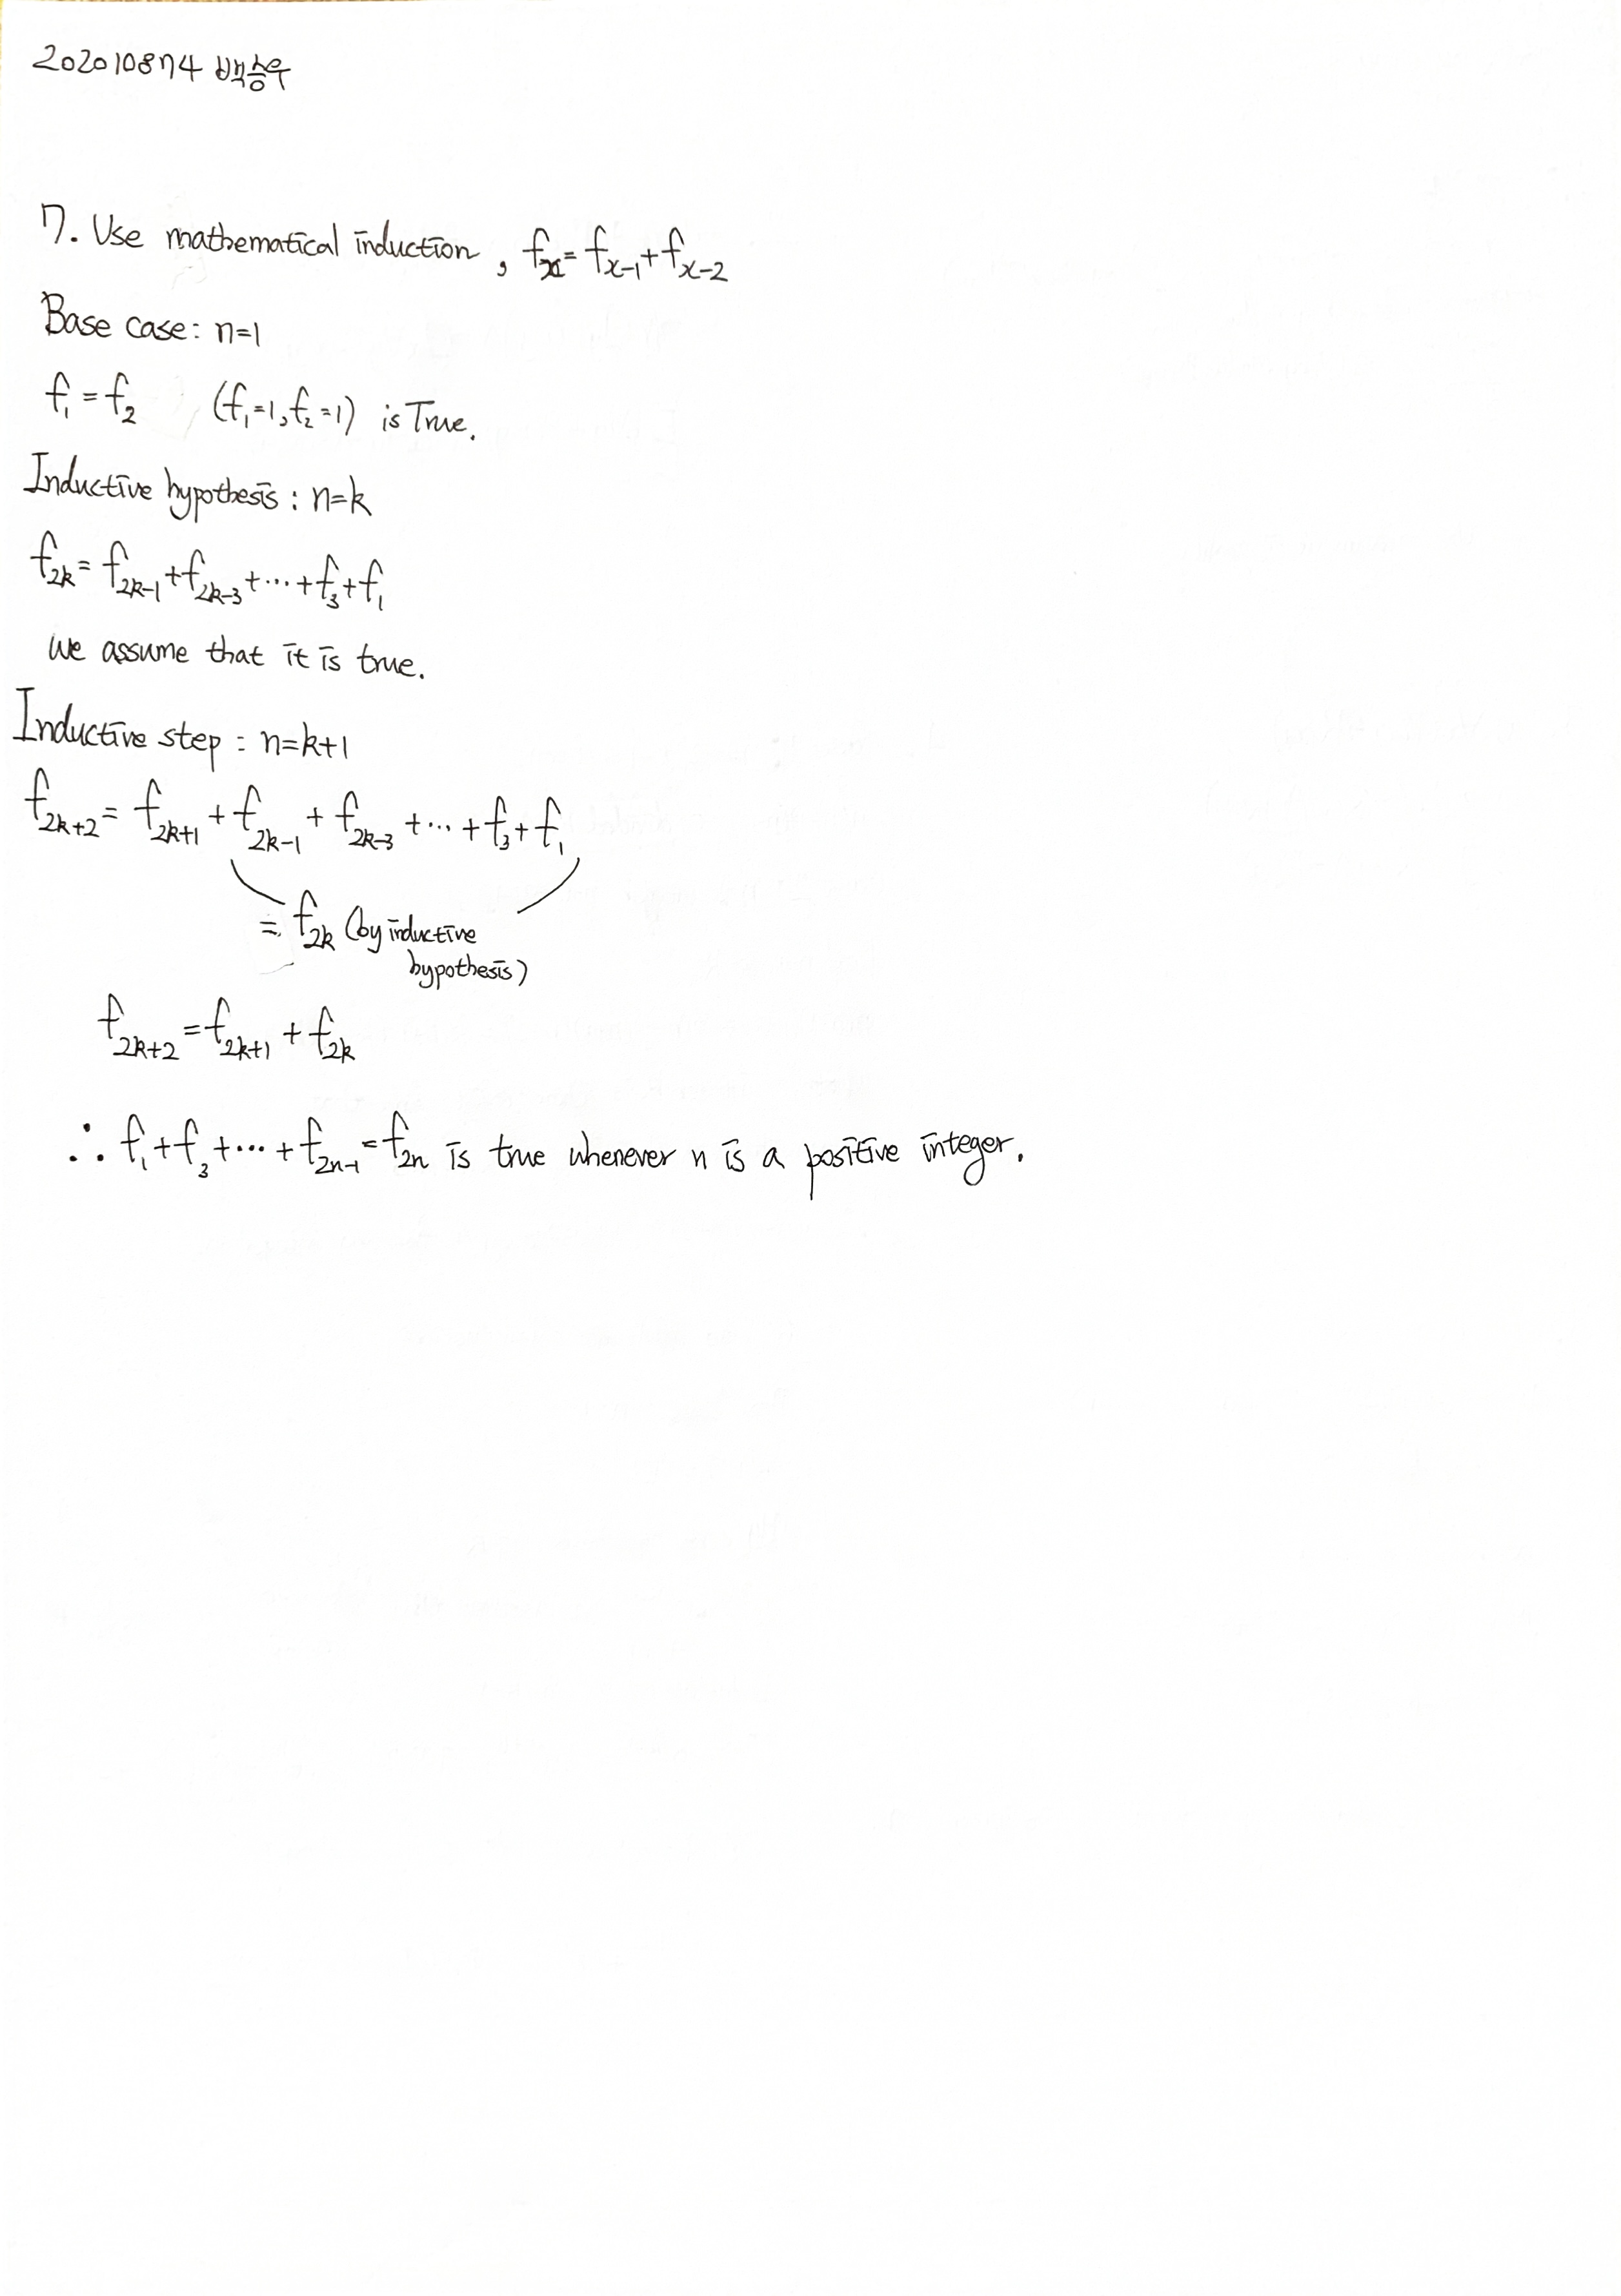 2020108774 백승우
7. Use mathematical induction, fx = fx-1 + fx-2
Base case: n=1
f1 = f2 (f1=1, f2=1) is True.
Inductive hypothesis : n=k
f2k = f2k-1 + f2k-3 + ... + f3 + f1
we assume that it is true.
Inductive step : n=k+1
f2k+2 = f2k+1 + f2k-1 + f2k-3 + ... + f3 + f1
= f2k (by inductive
hypothesis)
f2k+2 = f2k+1 + f2k
∴ f1 + f3 + ... + f2n-1 = f2n is true whenever n is a positive integer.